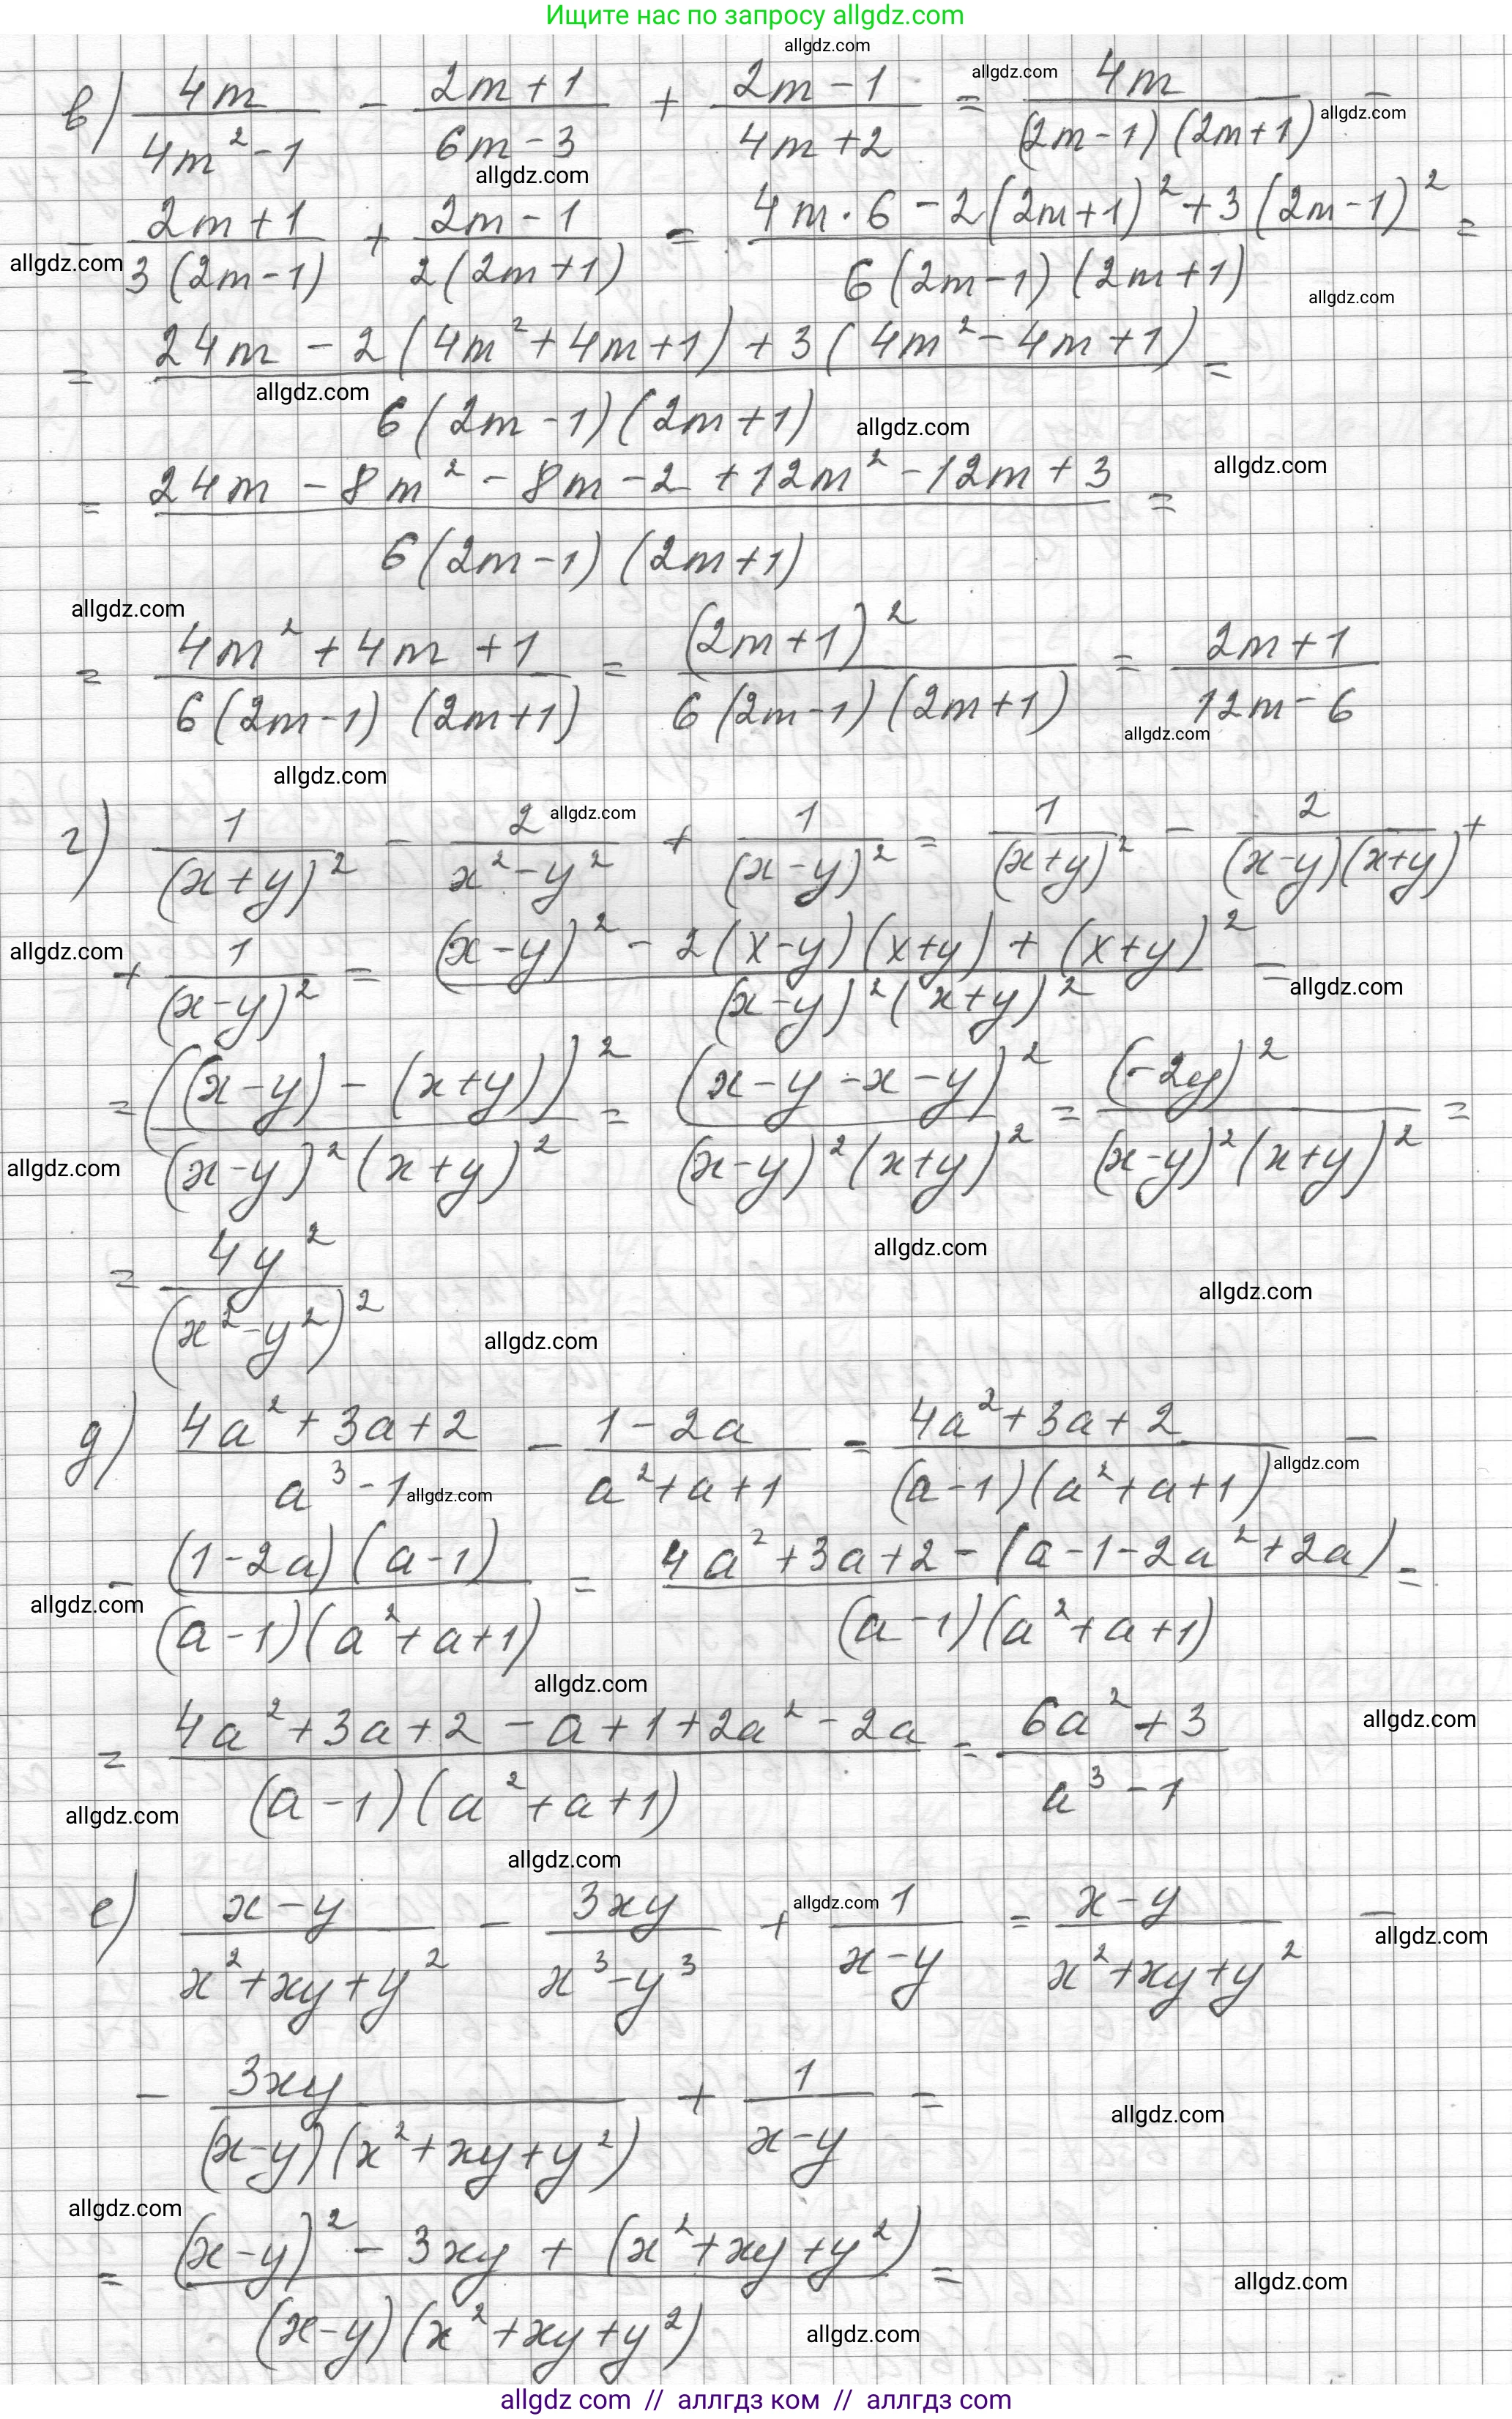 Ищите нас по запросу allgdz.com
allgdz.com
в) 4m/(4m² - 1) - (2m + 1)/(6m - 3) + (2m - 1)/(4m + 2) = 4m/((2m - 1)(2m + 1)) -
allgdz.com allgdz.com
allgdz.com
- (2m + 1)/(3(2m - 1)) + (2m - 1)/(2(2m + 1)) = (4m · 6 - 2(2m + 1)² + 3(2m - 1)²)/(6(2m - 1)(2m + 1)) =
allgdz.com allgdz.com
= (24m - 2(4m² + 4m + 1) + 3(4m² - 4m + 1))/(6(2m - 1)(2m + 1)) =
allgdz.com allgdz.com
allgdz.com
= (24m - 8m² - 8m - 2 + 12m² - 12m + 3)/(6(2m - 1)(2m + 1)) =
allgdz.com
= (4m² + 4m + 1)/(6(2m - 1)(2m + 1)) = (2m + 1)²/(6(2m - 1)(2m + 1)) = (2m + 1)/(12m - 6)
allgdz.com
allgdz.com
г) 1/(x + y)² - 2/(x² - y²) + 1/(x - y)² = 1/(x + y)² - 2/((x - y)(x + y)) +
allgdz.com
+ 1/(x - y)² = ((x - y)² - 2(x - y)(x + y) + (x + y)²)/((x - y)²(x + y)²) =
allgdz.com allgdz.com
= ((x - y) - (x + y))²/((x - y)²(x + y)²) = (x - y - x - y)²/((x - y)²(x + y)²) = (-2y)²/((x - y)²(x + y)²) =
allgdz.com
= 4y²/(x² - y²)²
allgdz.com
allgdz.com
allgdz.com
д) (4a² + 3a + 2)/(a³ - 1) - (1 - 2a)/(a² + a + 1) = (4a² + 3a + 2)/((a - 1)(a² + a + 1)) -
allgdz.com allgdz.com
- ((1 - 2a)(a - 1))/((a - 1)(a² + a + 1)) = (4a² + 3a + 2 - (a - 1 - 2a² + 2a))/((a - 1)(a² + a + 1)) =
allgdz.com
allgdz.com
= (4a² + 3a + 2 - a + 1 + 2a² - 2a)/((a - 1)(a² + a + 1)) = (6a² + 3)/(a³ - 1)
allgdz.com
allgdz.com
allgdz.com
е) (x - y)/(x² + xy + y²) - 3xy/(x³ - y³) + 1/(x - y) = (x - y)/(x² + xy + y²) -
allgdz.com allgdz.com
- 3xy/((x - y)(x² + xy + y²)) + 1/(x - y) =
allgdz.com
allgdz.com
= ((x - y)² - 3xy + (x² + xy + y²))/((x - y)(x² + xy + y²)) =
allgdz.com
allgdz.com
allgdz com // аллгдз ком // аллгдз com